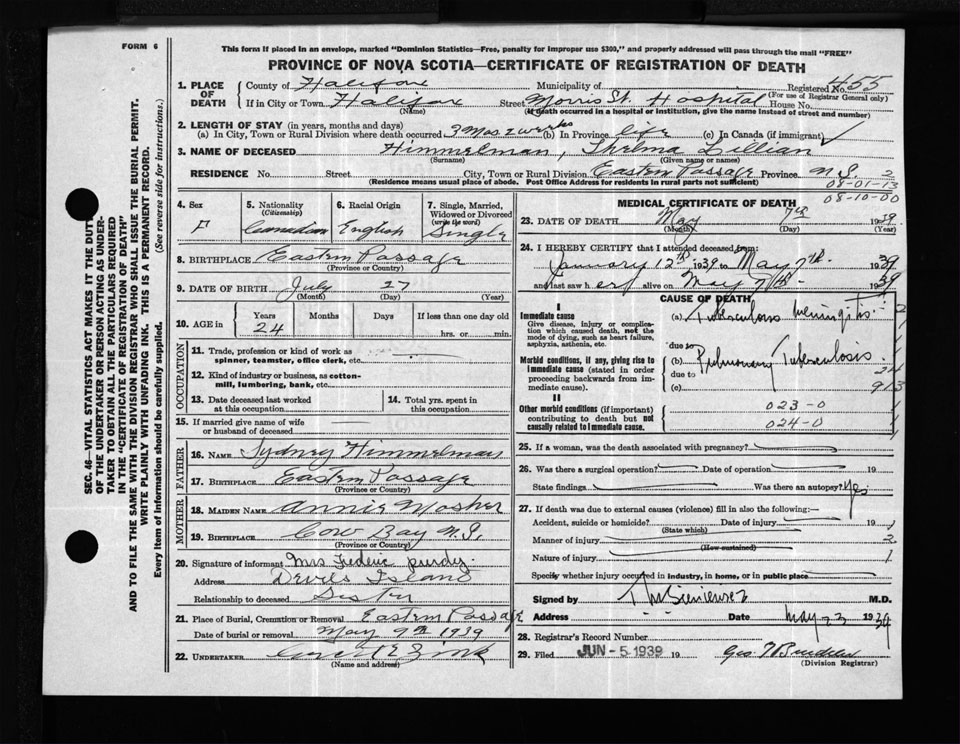 FORM 6
This form if placed in an envelope, marked "Dominion Statistics—Free, penalty for improper use $300," and properly addressed will pass through the mail "FREE"
PROVINCE OF NOVA SCOTIA—CERTIFICATE OF REGISTRATION OF DEATH
SEC. 46—VITAL STATISTICS ACT MAKES IT THE DUTY
OF THE UNDERTAKER OR PERSON ACTING AS UNDER-
TAKER TO OBTAIN ALL THE PARTICULARS REQUIRED
IN THE "CERTIFICATE OF REGISTRATION OF DEATH"
AND TO FILE THE SAME WITH THE DIVISION REGISTRAR WHO SHALL ISSUE THE BURIAL PERMIT.
WRITE PLAINLY WITH UNFADING INK. THIS IS A PERMANENT RECORD.
Every item of Information should be carefully supplied. (See reverse side for instructions.)
1. PLACE OF DEATH County of Halifax Municipality of Registered No. 455
(For use of Registrar General only)
If in City or Town Halifax Street Morris St. Hospital House No.
(Name) (If death occurred in a hospital or institution, give the name instead of street and number)
2. LENGTH OF STAY (in years, months and days)
(a) In City, Town or Rural Division where death occurred 3 mos 2 weeks (b) In Province life (c) In Canada (if immigrant)
3. NAME OF DECEASED Himmelman, Thelma Lillian
(Surname) (Given name or names)
RESIDENCE No. Street City, Town or Rural Division Eastern Passage Province N.S. 2
(Residence means usual place of abode. Post Office Address for residents in rural parts not sufficient)
08-01-13
08-10-00
4. Sex 5. Nationality (Citizenship) 6. Racial Origin 7. Single, Married, Widowed or Divorced (write the word)
F Canadian English Single
8. BIRTHPLACE Eastern Passage
(Province or Country)
9. DATE OF BIRTH July 27
(Month) (Day) (Year)
10. AGE in Years Months Days If less than one day
24 hrs. or min.
OCCUPATION
11. Trade, profession or kind of work as
spinner, teamster, office clerk, etc.
12. Kind of industry or business, as cotton-
mill, lumbering, bank, etc.
13. Date deceased last worked at this occupation 14. Total yrs. spent in this occupation
15. If married give name of wife
or husband of deceased
FATHER
16. NAME Sydney Himmelman
17. BIRTHPLACE Eastern Passage
(Province or Country)
MOTHER
18. MAIDEN NAME Annie Mosher
19. BIRTHPLACE Cow Bay N.S.
(Province or Country)
20. Signature of informant Mrs Frederic Purdy
Address Devils Island
Relationship to deceased Sister
21. Place of Burial, Cremation or Removal Eastern Passage
Date of burial or removal May 9th 1939
22. UNDERTAKER Zink
(Name and address)
MEDICAL CERTIFICATE OF DEATH
23. DATE OF DEATH May 7th 1939
(Month) (Day) (Year)
24. I HEREBY CERTIFY that I attended deceased from:
January 12th 1939 to May 7th 1939
and last saw her alive on May 7th 1939
CAUSE OF DEATH
I
Immediate cause (a) Tuberculous Meningitis
Give disease, injury or complica-
tion which caused death, not the
mode of dying, such as heart failure,
asphyxia, asthenia, etc.
due to
Morbid conditions, if any, giving rise to (b) Pulmonary Tuberculosis
immediate cause (stated in order due to 24
proceeding backwards from im-
mediate cause). (c) 913
II
Other morbid conditions (if important) 023-0
contributing to death but not
causally related to immediate cause. 024-0
25. If a woman, was the death associated with pregnancy?
26. Was there a surgical operation? Date of operation 19
State findings Was there an autopsy? Yes
27. If death was due to external causes (violence) fill in also the following:—
Accident, suicide or homicide? Date of injury 19
(State which)
Manner of injury 2
(How sustained)
Nature of injury 1
Specify whether injury occurred in industry, in home, or in public place
Signed by M.D.
Address Date May 23 1939
28. Registrar's Record Number
29. Filed JUN - 5 1939 19 Geo
(Division Registrar)